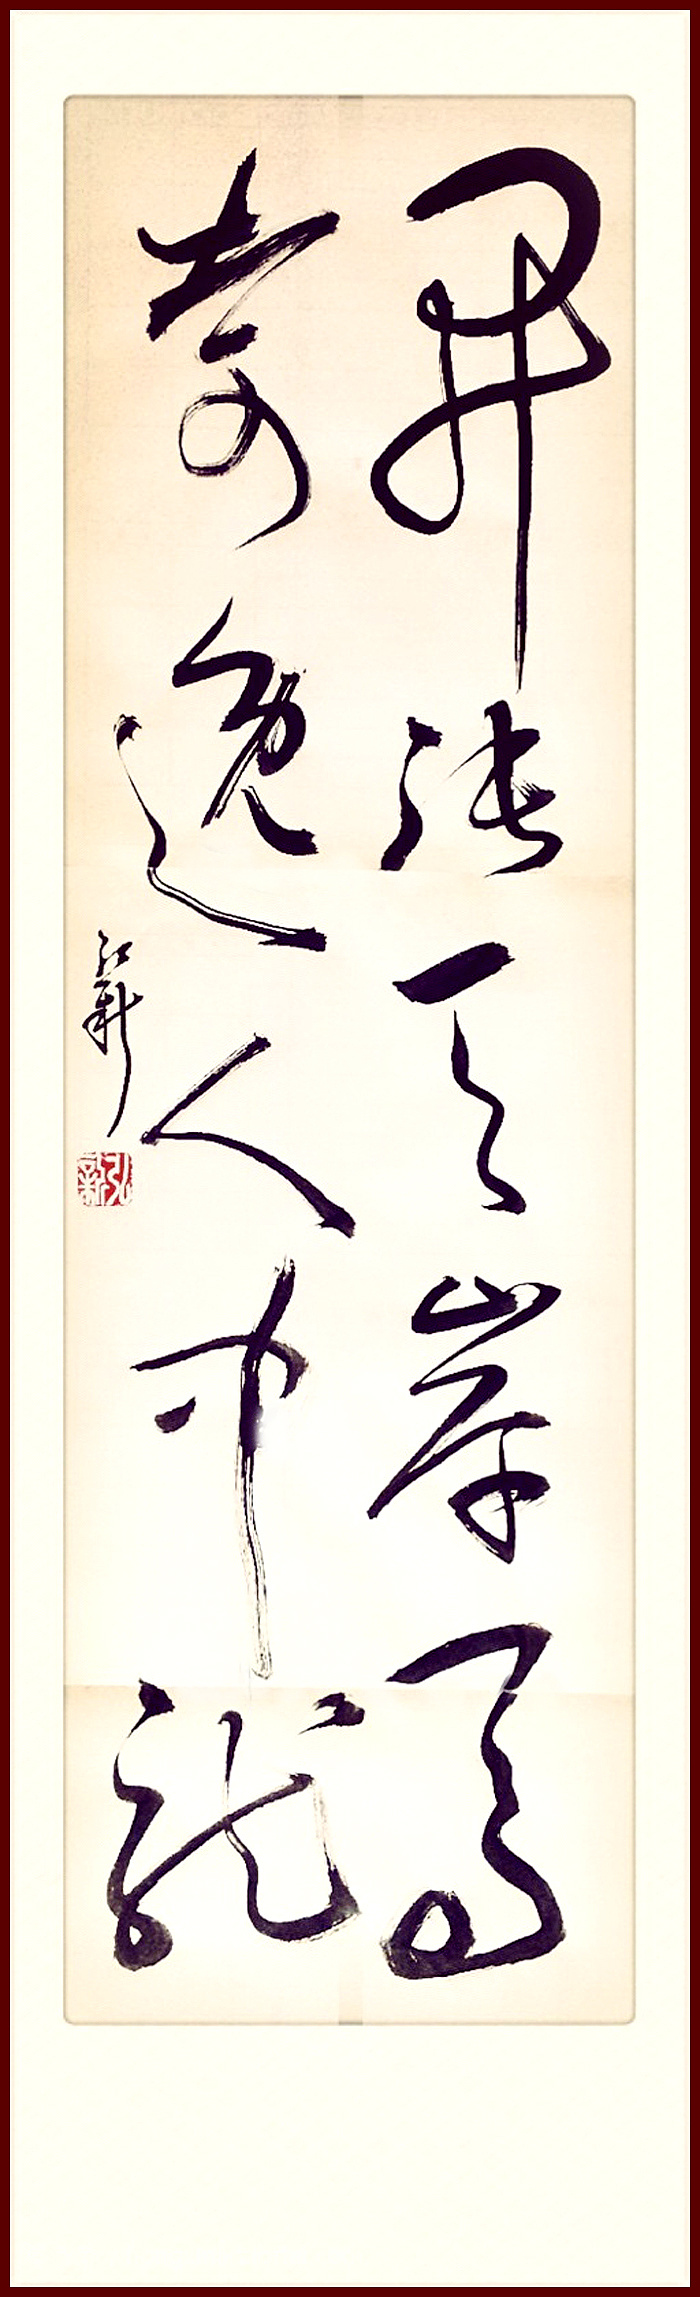 開張天岸馬
奇逸人中龍
弘新